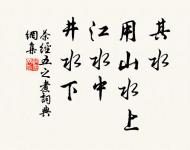 其水
用山水上
江水中
井水下
茶經五之煮詞典
網集